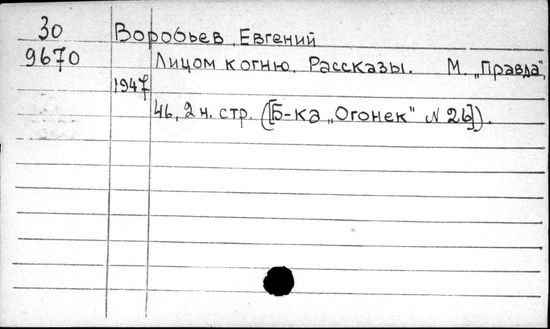 30 Воробьев Евгений
9670 Лицом к огню. Рассказы. М. „Правда",
1947
46, 2 н. стр. ([Б-ка „Огонек" N 26]).